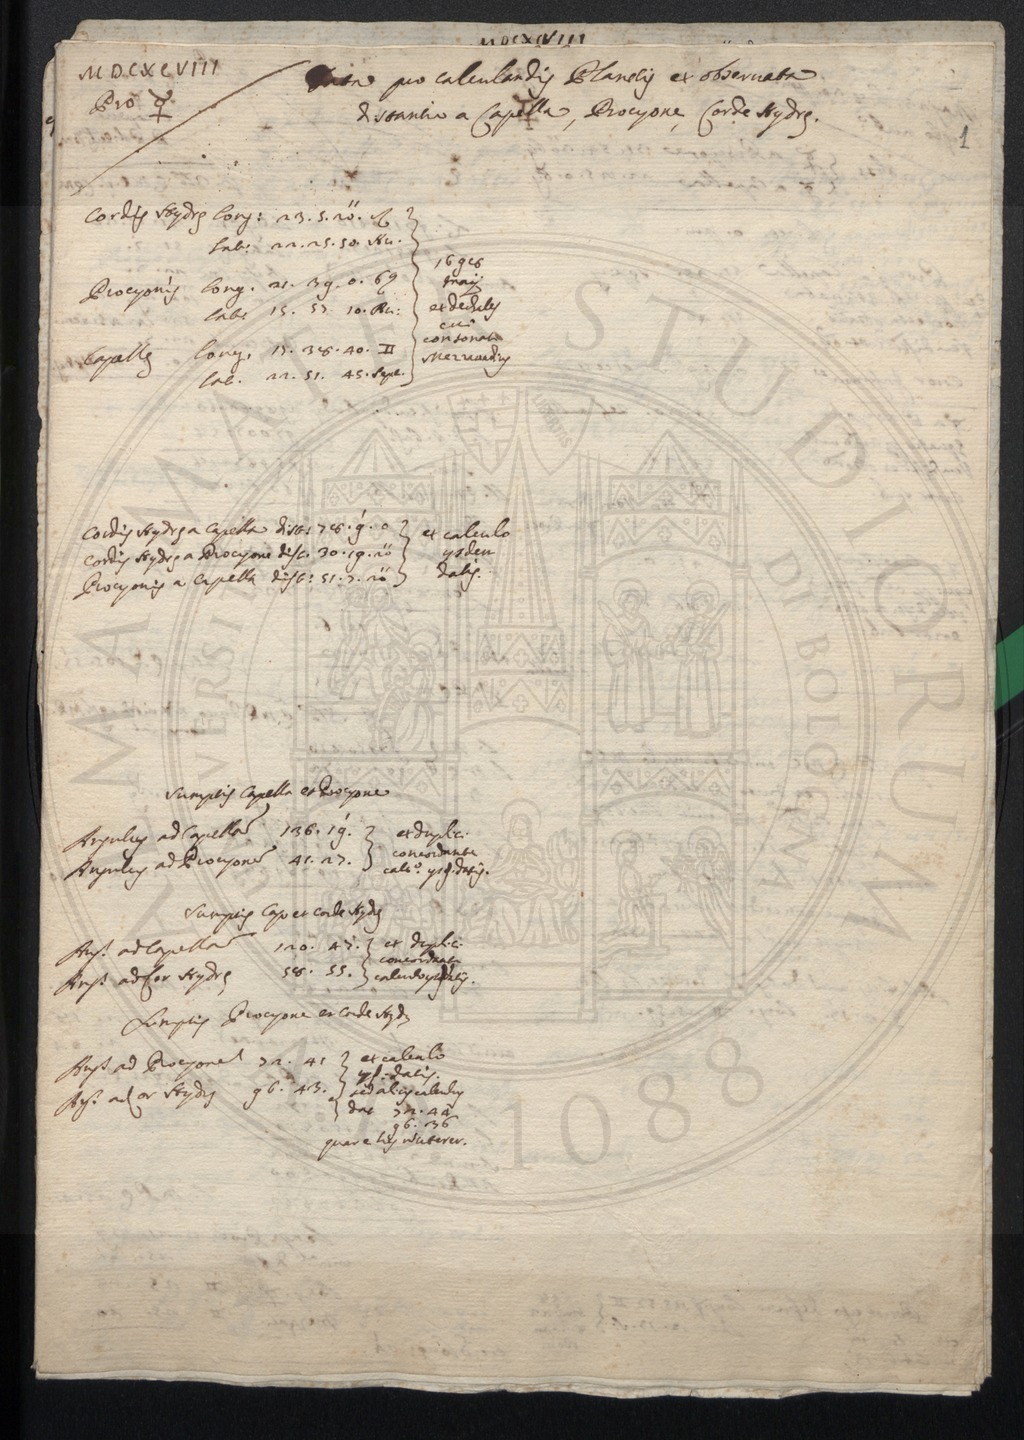 MDCXCVIII
MDCXCVIII
Pro ☿
pro calculandis Planetis ex observata
distantia a Capella, Procyone, Corde Hydrę.
1
Cordis Hydrę Long: 23. 5. 20. ♌
Lat: 22. 25. 50. Au.
Procyonis Long. 21. 39. 0. 69
Lat: 15. 57. 10. Au:
Capellę Long. 17. 38. 40. II
Lat. 22. 51. 45. Sept.
16 98
Maij
ex
cui
consonat
Cordis Hydrę a Capella dist: 78. 9. 0
Cordis Hydrę a Procyone dist. 30. 19. 20
Procyonis a Capella dist: 51. 7. 20
ex calculo
ysdem
datis.
Sumptis Capella et Procyone
Angulus ad Capellam 136. 19.
Angulus ad Procyonem 41. 27.
ex duplici
concordante
calc.º ysd. datis.
Sumptis Cap. et corde Hydrę
Ang.s ad Capellam 120. 47.
Ang.s ad Cor Hydrę 58. 55.
ex duplici
concordante
calculo ysd. datis.
Sumptis Procyone et Corde Hydrę
Ang.s ad Procyonem 72. 41
Ang.s ad Cor Hydrę 96. 43.
ex calculo
ysd. datis.
sed alius calculus
dat 72. 44
96. 36
quare his utterer.
ALMA MATER STUDIORUM
UNIVERSITÀ DI BOLOGNA
LIBERTAS
A.D. 1088